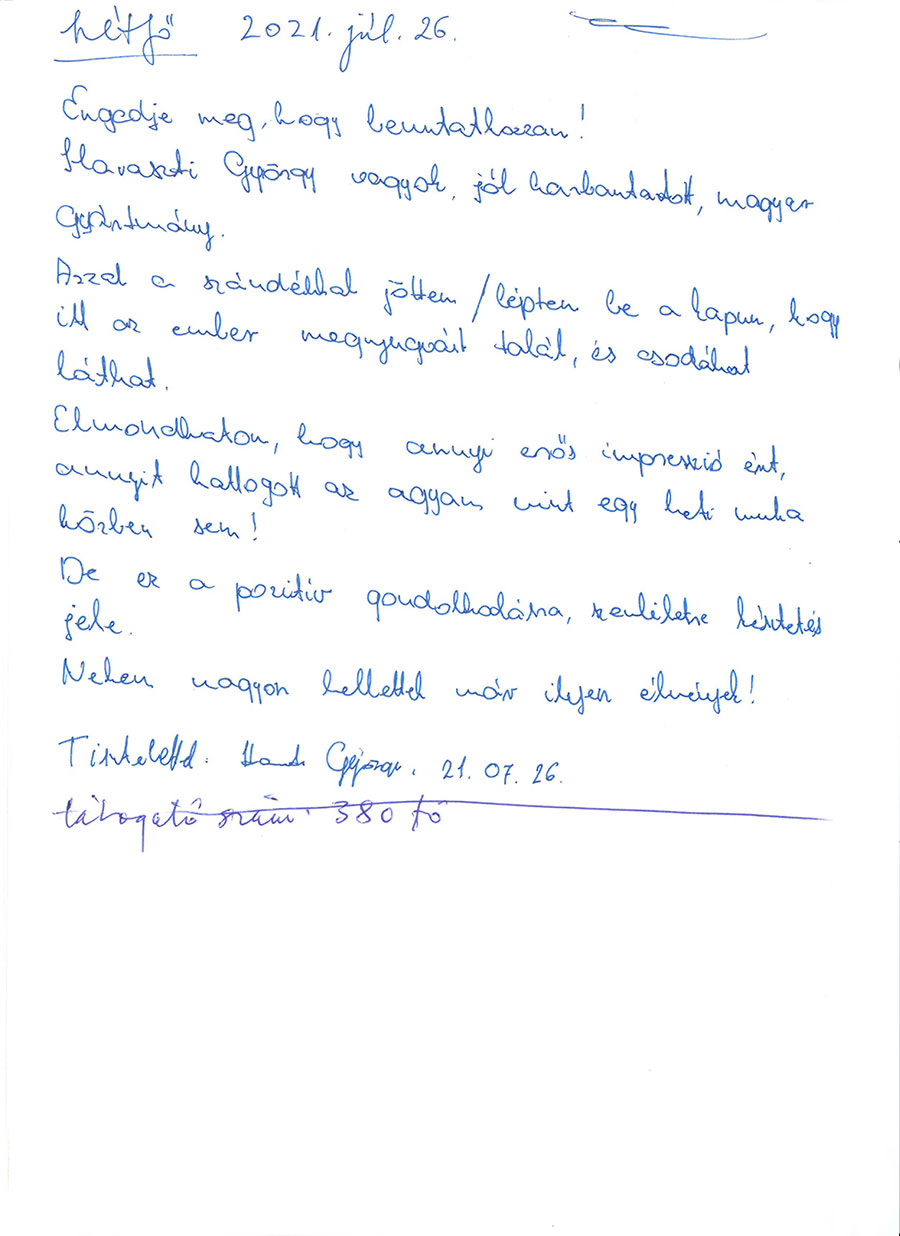 hétfő 2021. júl. 26.
Engedje meg, hogy bemutatkozzam!
Havaszti György vagyok, jól karbantartott, magyar
gyártmány.
Azzal a szándékkal jöttem / léptem be a kapun, hogy
itt az ember megnyugvást talál, és csodákat
láthat.
Elmondhatom, hogy annyi erős impresszió ért,
annyit kattogott az agyam mint egy heti munka
közben sem!
De ez a pozitív gondolkodásra, szemléletre késztetés
jele.
Nekem nagyon kellettek már ilyen élmények!
Tisztelettel: György. 21. 07. 26.
látogató szám: 380 fő